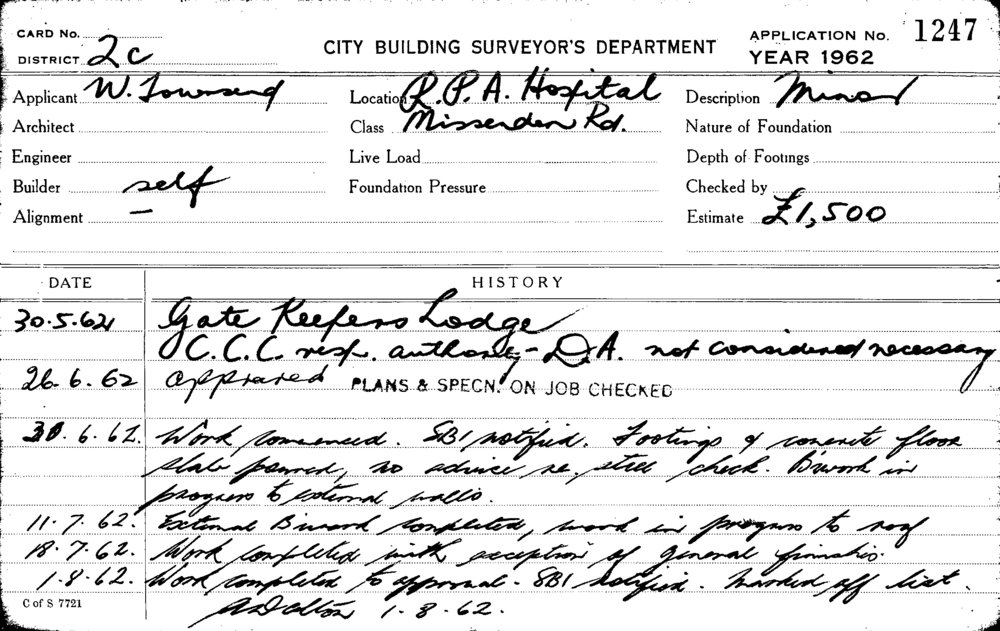 CARD No.
DISTRICT 2c
CITY BUILDING SURVEYOR'S DEPARTMENT
APPLICATION No. 1247
YEAR 1962
Applicant W. Townsend
Location R.P.A. Hospital
Description Minor
Architect
Class Missenden Rd.
Nature of Foundation
Engineer
Live Load
Depth of Footings
Builder self
Foundation Pressure
Checked by
Alignment —
Estimate £1,500
DATE HISTORY
30.5.62 Gate Keepers Lodge
C.C.C. resp. authority - D.A. not considered necessary
26.6.62 approved PLANS & SPECN. ON JOB CHECKED
30.6.62. Work commenced. SBI notified. Footings & concrete floor
slab poured, no advice re. steel check. B'work in
progress to external walls.
11.7.62. External B'work completed, work in progress to roof
18.7.62. Work completed with exception of general finishes.
1.8.62. Work completed to approval - SBI notified. Marked off list.
1.8.62.
C of S 7721